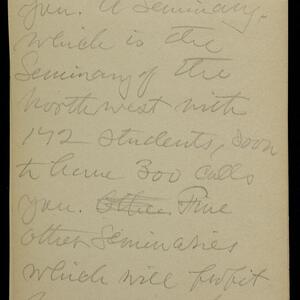 you. A Seminary.
which is the
Seminary of the
Northwest with
192 students, soon
to have 300 calls
you. Other Five
other Seminaries
which will profit